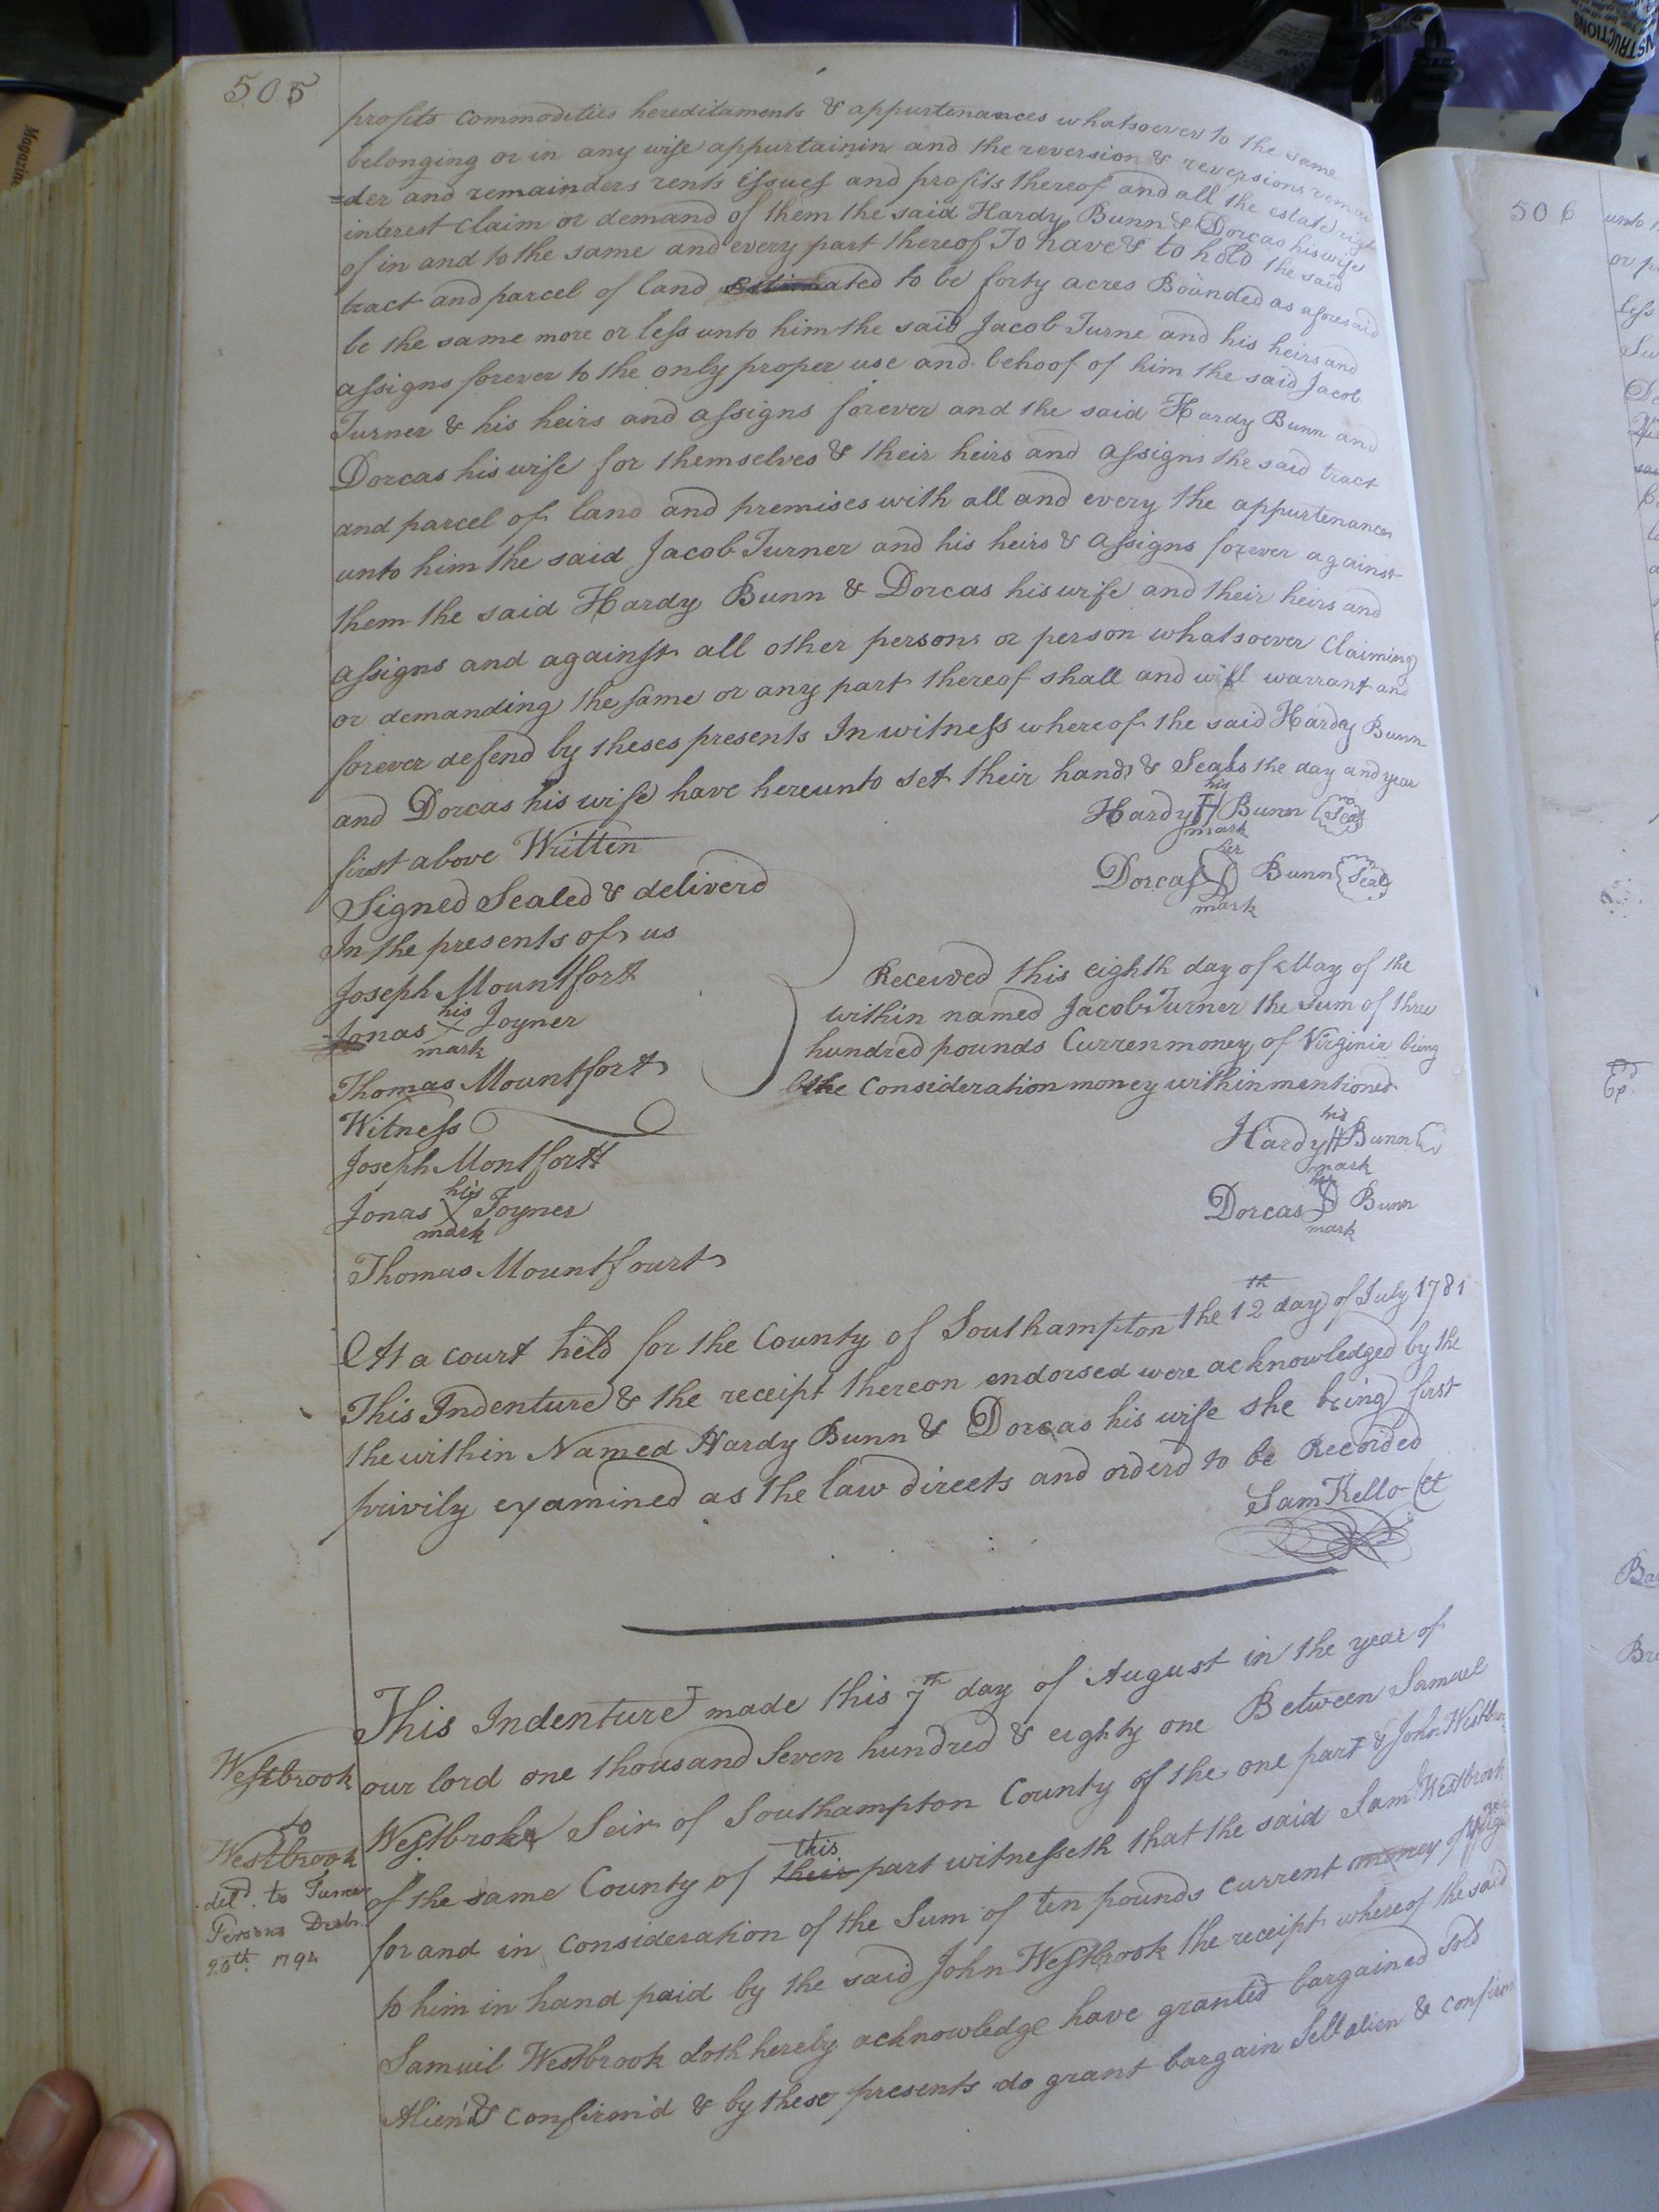 505
profits commodities hereditaments & appurtenances whatsoever to the same
belonging or in any wise appurtainin and the reversion & reversions remain
=der and remainders rents issues and profits thereof and all the estate right
interest claim or demand of them the said Hardy Bunn & Dorcas his wife
of in and to the same and every part thereof To have & to hold the said
tract and parcel of land estimated to be forty acres Bounded as aforesaid
be the same more or less unto him the said Jacob Turne and his heirs and
assigns forever to the only proper use and behoof of him the said Jacob
Turner & his heirs and assigns forever and the said Hardy Bunn and
Dorcas his wife for themselves & their heirs and assigns the said tract
and parcel of land and premises with all and every the appurtenances
unto him the said Jacob Turner and his heirs & assigns forever against
them the said Hardy Bunn & Dorcas his wife and their heirs and
assigns and against all other persons or person whatsoever Claiming
or demanding the same or any part thereof shall and will warrant and
forever defend by theses presents In witness whereof the said Hardy Bunn
and Dorcas his wife have hereunto set their hands & Seals the day and year
first above Written
his
Hardy H Bunn Seal
mark
her
Dorcas D Bunn Seal
mark
Signed Sealed & deliverd
In the presents of us
Joseph Mountfort
his
Jonas X Joyner
mark
Thomas Mountfort
Received this eighth day of May of the
within named Jacob Turner the sum of three
hundred pounds Curren money of Virginia being
the Consideration money within mentioned
Witness
Joseph Montfortt
his
Jonas X Joyner
mark
Thomas Mountfourt
his
Hardy H Bunn
mark
her
Dorcas D Bunn
mark
At a court held for the County of Southampton the 12th day of July 1781
This Indenture & the receipt thereon endorsed were acknowledged by the
the within Named Hardy Bunn & Dorcas his wife she being first
privily examined as the law directs and orderd to be Recorded
Sam Kello Ct
This Indenture made this 7th day of August in the year of
our lord one thousand Seven hundred & eighty one Between Samuel
Westbroke Seir of Southampton County of the one part & John Westbro
this
of the same County of their part witnesseth that the said Sam Westbrook
for and in consideration of the Sum of ten pounds current money of
to him in hand paid by the said John Westbrook the receipt whereof the said
Samuil Westbrook doth hereby acknowledge have granted bargained sold
Alien'd & confirm'd & by these presents do grant bargain Sell alien & confirm
Westbrook
to
Westbrook
deld. to
Persons
20th 1794
506
unto
or p
less